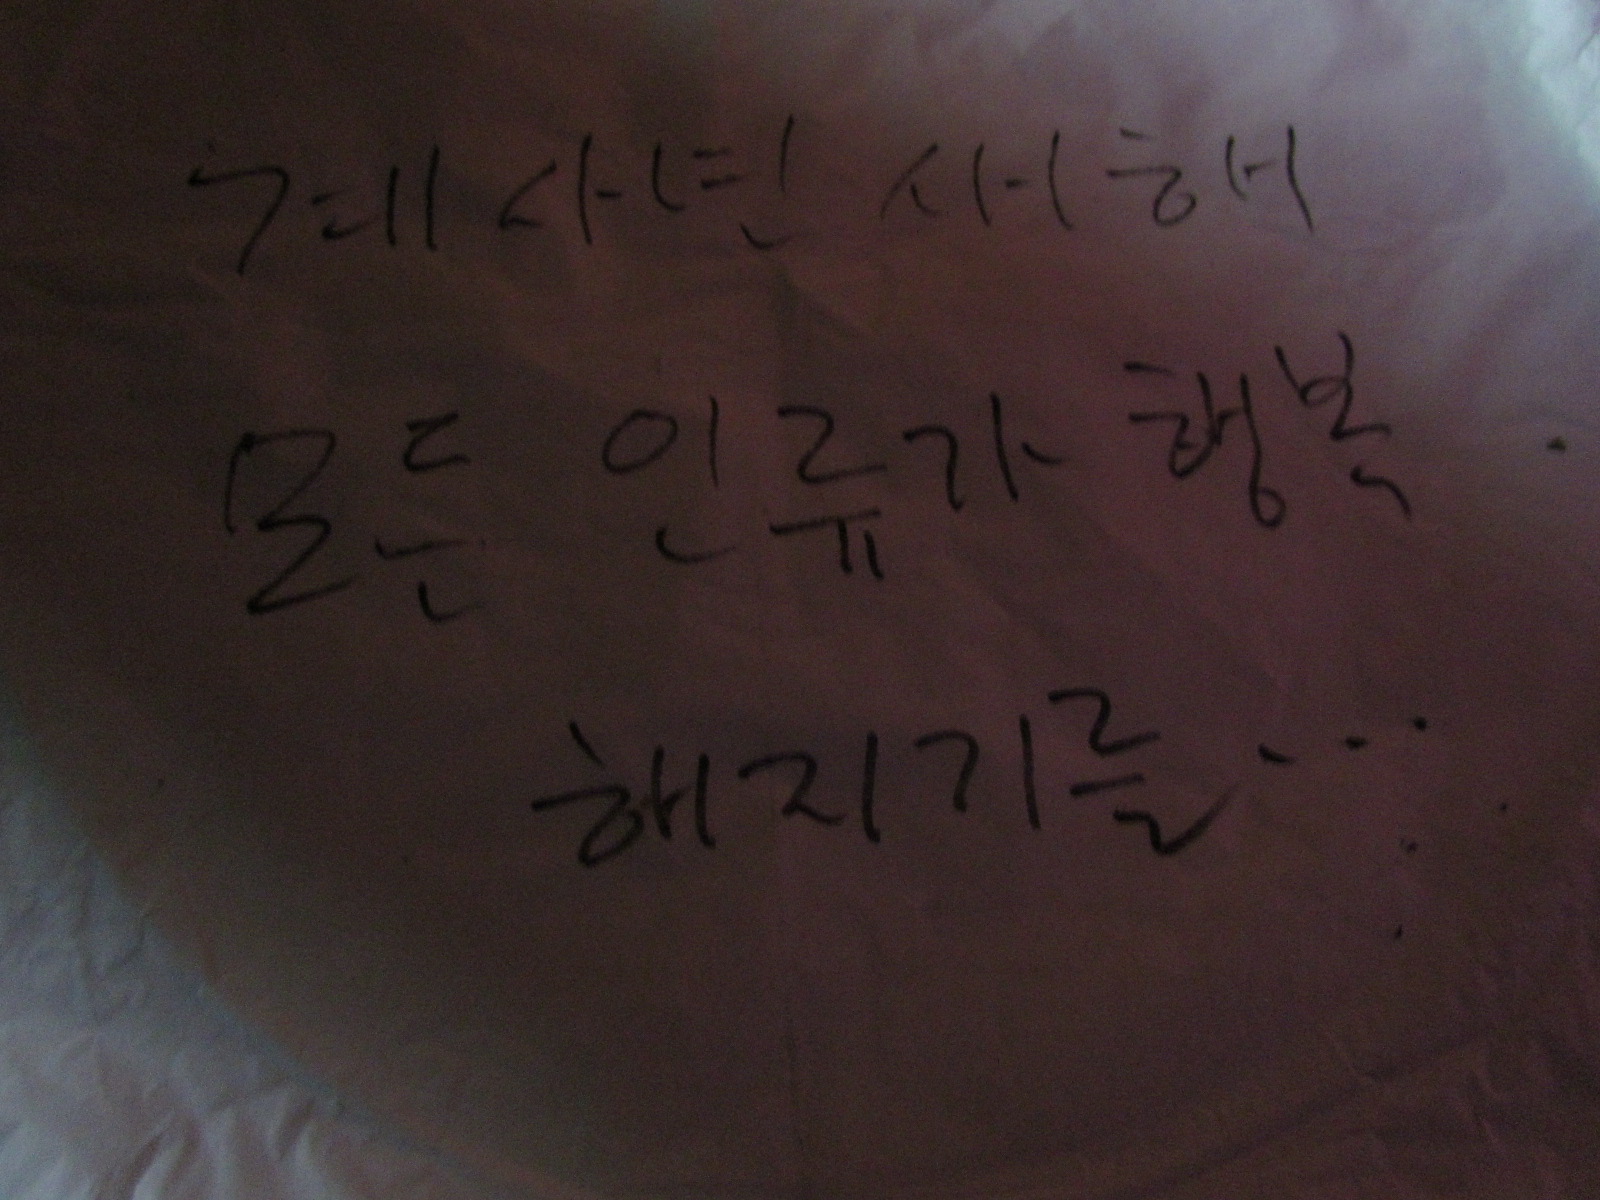 계사년 새해
모든 인류가 행복
해지기를...